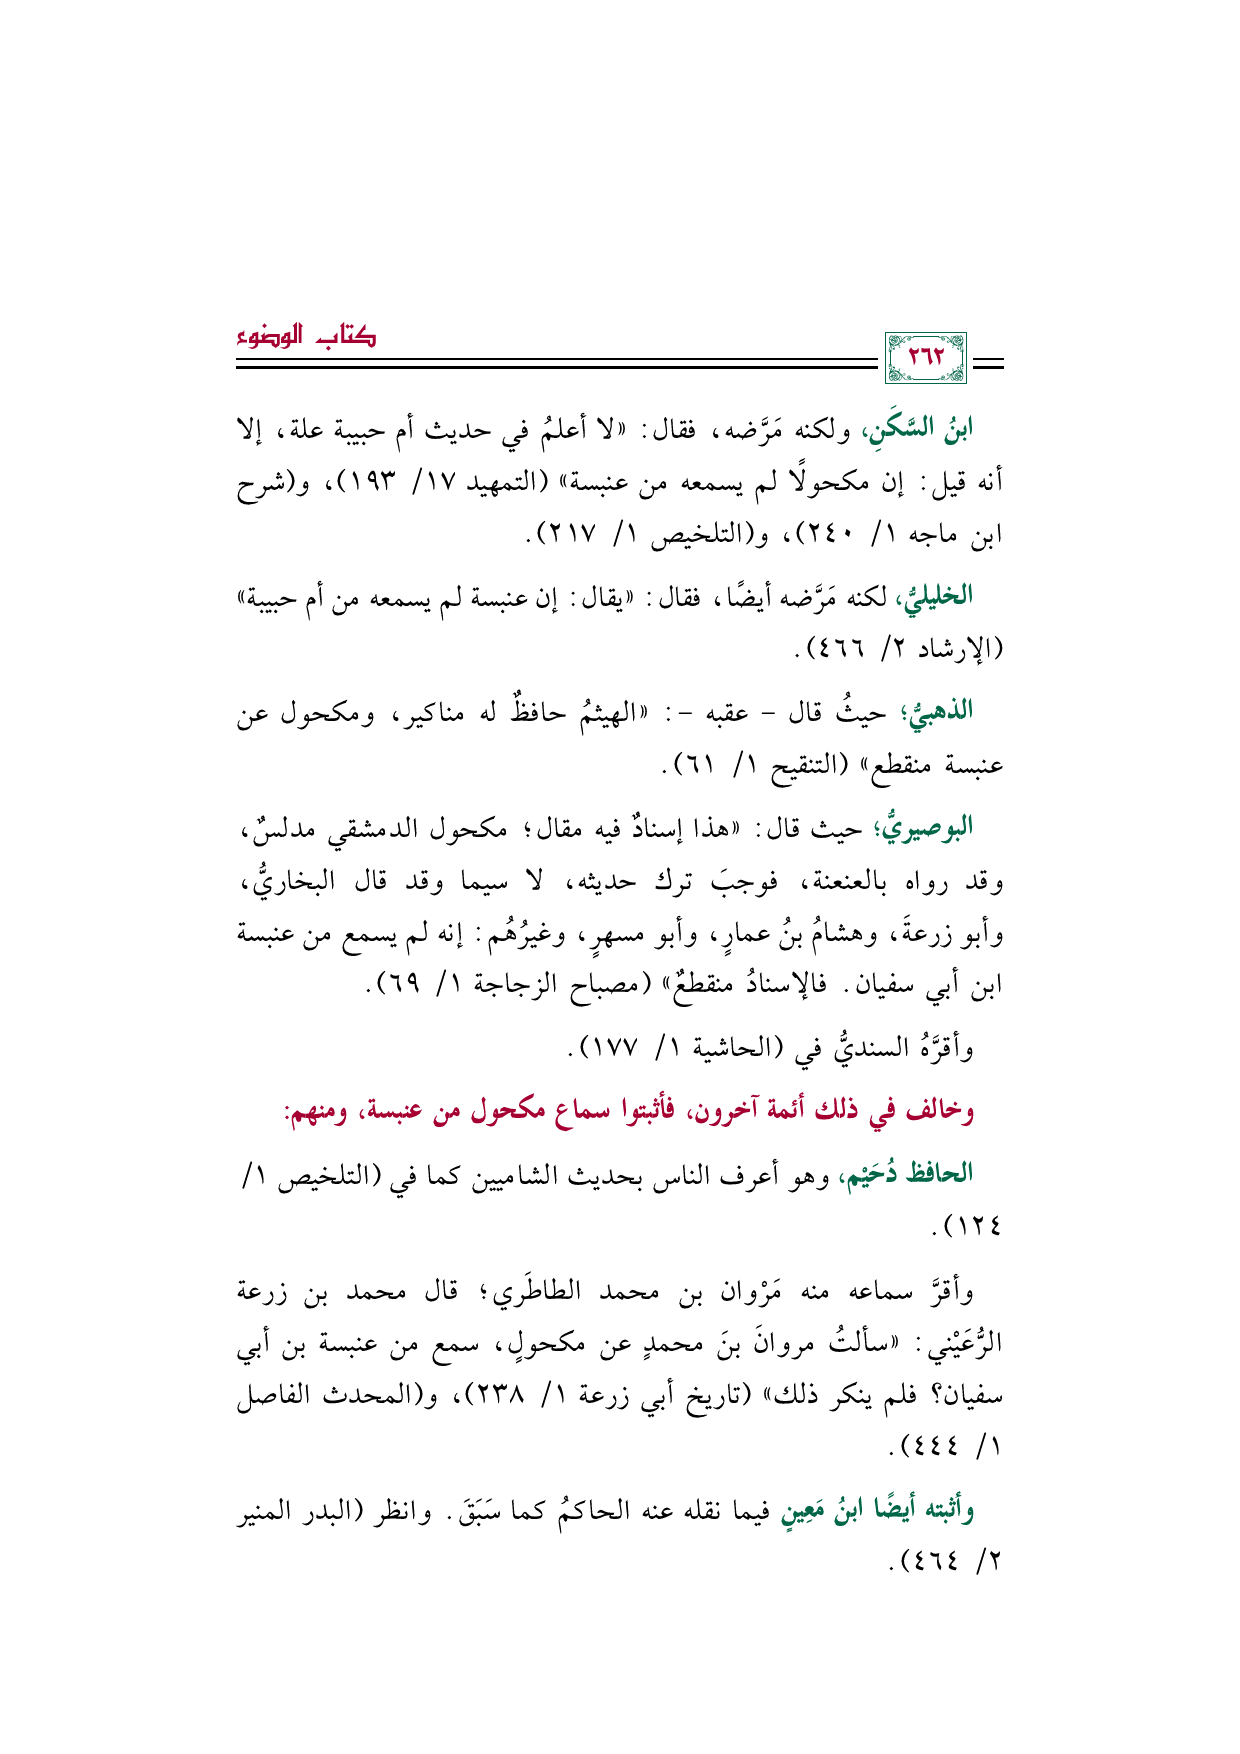 كتاب الوضوء
٢٦٢
ابنُ السَّكَنِ، ولكنه مَرَّضه، فقال: «لا أعلمُ في حديث أم حبيبة علة، إلا
أنه قيل: إن مكحولًا لم يسمعه من عنبسة» (التمهيد ١٧/ ١٩٣)، و(شرح
ابن ماجه ١/ ٢٤٠)، و(التلخيص ١/ ٢١٧).
الخليليُّ، لكنه مَرَّضه أيضًا، فقال: «يقال: إن عنبسة لم يسمعه من أم حبيبة»
(الإرشاد ٢/ ٤٦٦).
الذهبيُّ؛ حيثُ قال - عقبه -: «الهيثمُ حافظٌ له مناكير، ومكحول عن
عنبسة منقطع» (التنقيح ١/ ٦١).
البوصيريُّ؛ حيث قال: «هذا إسنادٌ فيه مقال؛ مكحول الدمشقي مدلسٌ،
وقد رواه بالعنعنة، فوجبَ ترك حديثه، لا سيما وقد قال البخاريُّ،
وأبو زرعةَ، وهشامُ بنُ عمارٍ، وأبو مسهرٍ، وغيرُهُم: إنه لم يسمع من عنبسة
ابن أبي سفيان. فالإسنادُ منقطعٌ» (مصباح الزجاجة ١/ ٦٩).
وأقرَّهُ السنديُّ في (الحاشية ١/ ١٧٧).
وخالف في ذلك أئمة آخرون، فأثبتوا سماع مكحول من عنبسة، ومنهم:
الحافظ دُحَيْم، وهو أعرف الناس بحديث الشاميين كما في (التلخيص ١/
١٢٤).
وأقرَّ سماعه منه مَرْوان بن محمد الطاطَري؛ قال محمد بن زرعة
الرُّعَيْني: «سألتُ مروانَ بنَ محمدٍ عن مكحولٍ، سمع من عنبسة بن أبي
سفيان؟ فلم ينكر ذلك» (تاريخ أبي زرعة ١/ ٢٣٨)، و(المحدث الفاصل
١/ ٤٤٤).
وأثبته أيضًا ابنُ مَعِينٍ فيما نقله عنه الحاكمُ كما سَبَقَ. وانظر (البدر المنير
٢/ ٤٦٤).